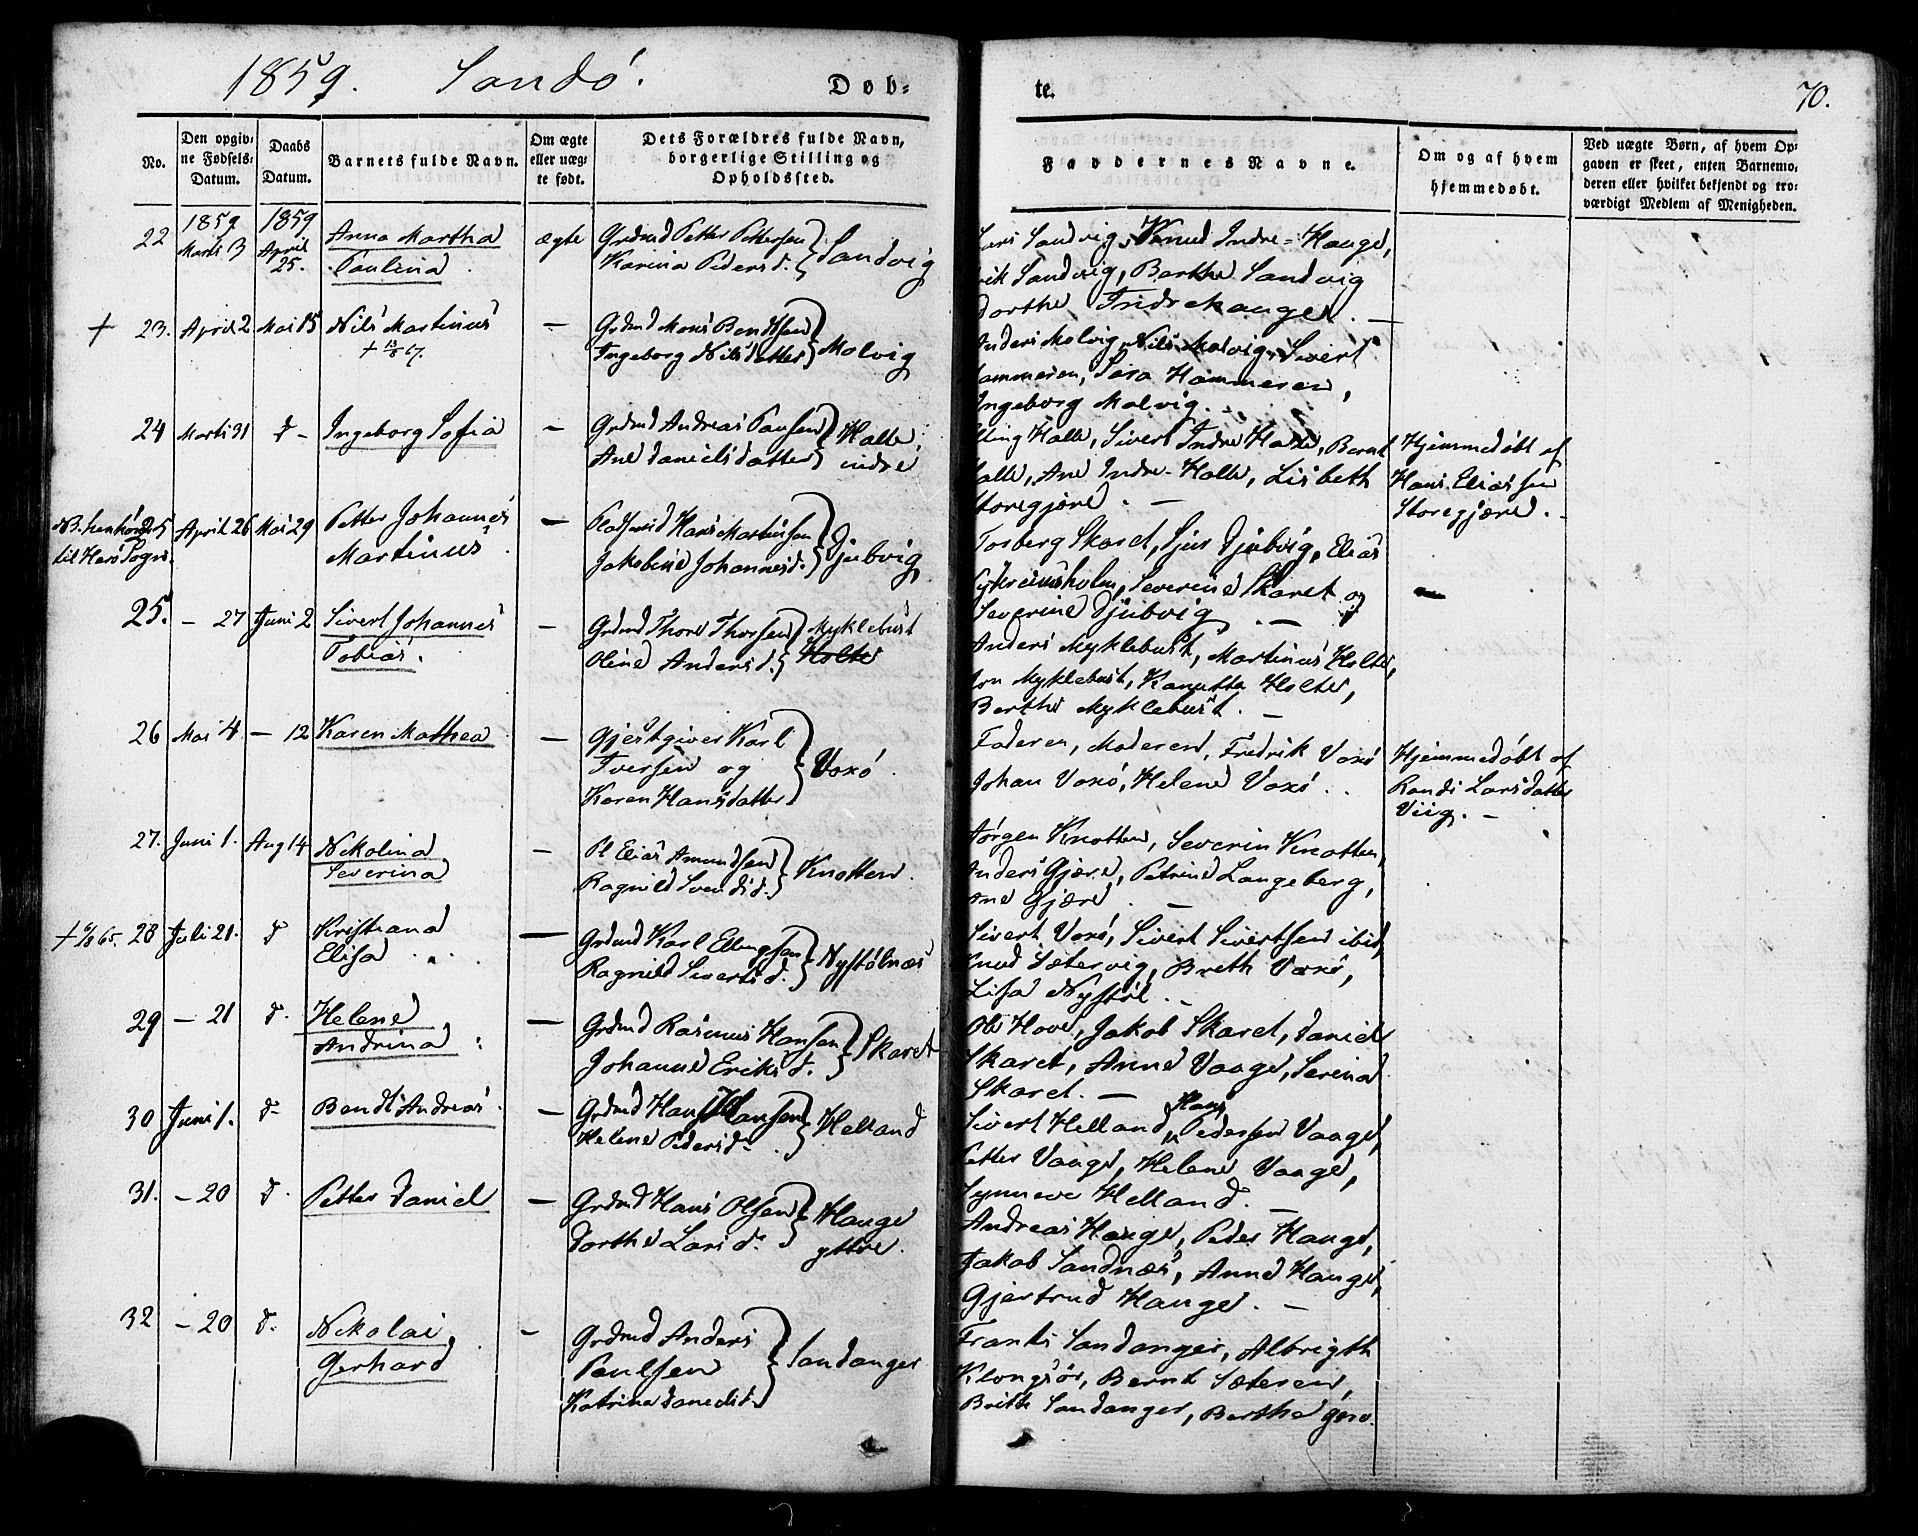 1859. Sandø. Døb-
te. 70.
No.
Den opgiv-
ne Fødsels-
Datum.
Daabs
Datum.
Barnets fulde Navn.
Om ægte
eller uæg-
te født.
Dets Forældres fulde Navn,
borgerlige Stilling og
Opholdssted.
Faddernes Navne.
Om og af hvem
hjemmedøbt.
Ved uægte Børn, af hvem Op-
gaven er skeet, enten Barnemo-
deren eller hvilket bekjendt og tro-
værdigt Medlem af Menigheden.
22 1859 Marts 3 1859 April 25.
Anna Martha
Paulina
ægte
Grdmd Petter Pettersen
Karina Pedersd.
Sandvig
Lars Sandvig, Knud Indre-Hauge,
Erik Sandvig, Berthe Sandvig
Dorthe Indrehauge. —
+ 23. April 2 Mai 15
Nils Martinus
+ 13/8 67.
—
Grdmd Mons Bendtsen
Ingeborg Nilsdatter
Molvig
Anders Molvig, Nils Molvig, Sivert
Hammeren, Sara Hammeren,
Ingeborg Molvig.
24 Marts 31 d-
Ingeborg Sofia
—
Grdmd Andreas Paulsen
Ane Danielsdatter
Halle
indre
Elling Halle, Sivert Indre Halle, Bernt
Halle, Ane Indre-Halle, Lisbeth
Storegjære. —
Hjemmedøbt af
Hans Eliassen
Storegjære. —
NB. henhører
til Harø Sogn.
April 26 Mai 29
Petter Johannes
Martinus.
—
Pladsmd Hans Martinsen
Jakobine Johannesd.
Djubvig
Torberg Skaret, Sjur Djubvig, Elias
Severine Skaret og
Severine Djubvig. —
25. — 27 Juni 2
Sivert Johannes
Tobias.
—
Grdmd Thore Thorsen
Oline Andersd.
Myklebust
Holte
Anders Myklebust, Martinus Holte,
Jon Myklebust, Kanutta Holte,
Berthe Myklebust. —
26 Mai 4 — 12
Karen Mathea
—
Gjestgiver Karl
Iversen og
Karen Hansdatter
Voxø.
Faderen, Moderen, Fredrik Voxø
Johan Voxø, Helene Voxø.
Hjemmedøbt af
Randi Larsdatter
Viig. —
27. Juni 1. Aug 14
Nikolina
Severina
—
Pl Elias Amundsen
Ragnild Svendsd.
Knotten.
Jørgen Knotten, Severin Knotten,
Anders Gjære, Petrine Langeberg,
Ane Gjære. —
+ 6/8 65. 28 Juli 21. d
Kristiana
Elisa
—
Grdmd Karl Ellingsen
Ragnild Sivertsd.
Nystølnæs
Sivert Voxø, Sivert Sivertsen ibid,
Knud Sætervig, Breth Voxø,
Lisa Nystøl. —
29 — 21 d.
Helene
Andrina
—
Grdmd Rasmus Hansen
Johanne Eriksd.
Skaret
Ole Hove, Jakob Skaret, Daniel
Skaret, Anne Vaage, Serina
Skaret. —
30 Juni 1. d-
Bendt Andreas
—
Grdmd Hans Hansen
Helene Pedersd.
Helland
Sivert Helland, Hans Pedersen Vaage,
Petter Vaage, Helene Vaage,
Synneve Helland. —
31. — 20 d.
Petter Daniel
—
Grdmd Hans Olsen
Dorthe Larsd.
Hauge
yttre.
Andreas Hauge, Peder Hauge,
Jakob Sandnæs, Anne Hauge,
Gjertrud Hauge. —
32 — 20 d.
Nikolai
Gerhard
—
Grdmd Anders
Paulsen
Katrine Danielsd.
Sandanger
Frants Sandanger, Albrigth
Klongsør, Bernt Sæteren,
Brith Sandanger, Berthe